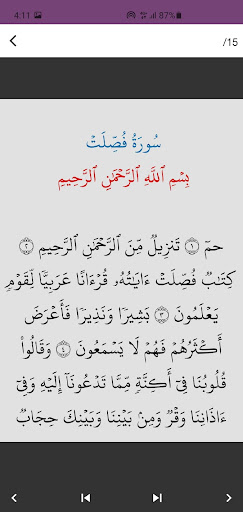 4:11 87%
/15
سُورَةُ فُصِّلَتۡ
بِسۡمِ ٱللَّهِ ٱلرَّحۡمَٰنِ ٱلرَّحِيمِ
حمٓ ۝١ تَنزِيلٞ مِّنَ ٱلرَّحۡمَٰنِ ٱلرَّحِيمِ ۝٢
كِتَٰبٞ فُصِّلَتۡ ءَايَٰتُهُۥ قُرۡءَانًا عَرَبِيّٗا لِّقَوۡمٖ
يَعۡلَمُونَ ۝٣ بَشِيرٗا وَنَذِيرٗا فَأَعۡرَضَ
أَكۡثَرُهُمۡ فَهُمۡ لَا يَسۡمَعُونَ ۝٤ وَقَالُواْ
قُلُوبُنَا فِيٓ أَكِنَّةٖ مِّمَّا تَدۡعُونَآ إِلَيۡهِ وَفِيٓ
ءَاذَانِنَا وَقۡرٞ وَمِنۢ بَيۡنِنَا وَبَيۡنِكَ حِجَابٞ